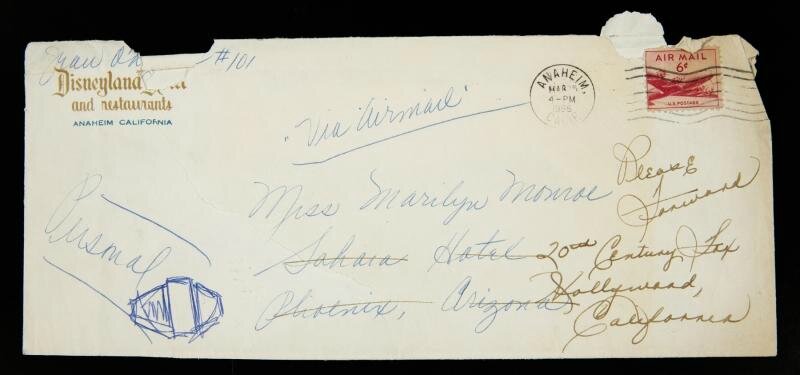 #101
Disneyland
and restaurants
ANAHEIM CALIFORNIA
"Via Airmail"
ANAHEIM,
MAR
4-PM
1956
CALIF.
AIR MAIL
6¢
U.S. POSTAGE
Personal
Miss Marilyn Monroe
Sahara Hotel
Phoenix, Arizona
Please
Forward
20th Century Fox
Hollywood,
California